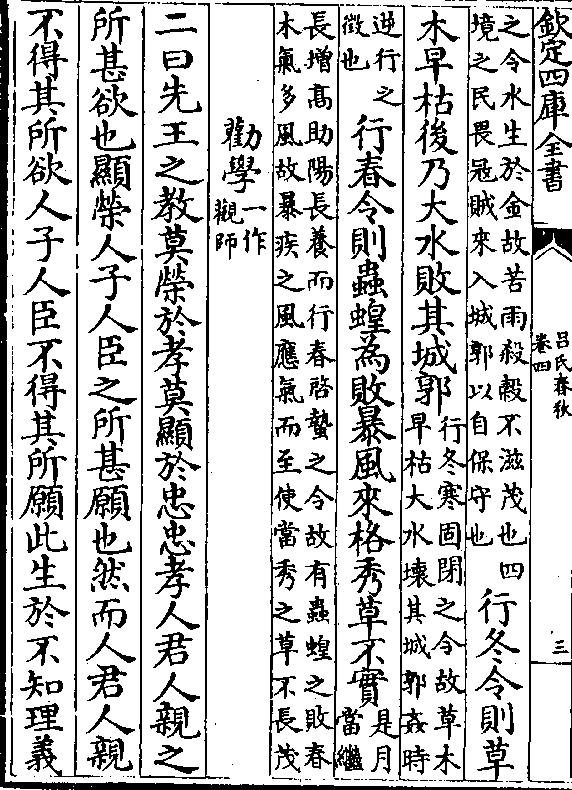 欽定四庫全書
呂氏春秋
卷四
三
之令水生於金故苦雨殺穀不滋茂也四
境之民畏冦賊來入城郭以自保守也
行冬令則草
木早枯後乃大水敗其城郭
行冬寒固閉之令故草木
早枯大水壞其城郭姦時
逆行之
徵也
行春令則蟲蝗為敗暴風來格秀草不實
是月
當繼
長增髙助陽長養而行春啓蟄之令故有蟲蝗之敗春
木氣多風故暴疾之風應氣而至使當秀之草不長茂
勸學
一作
觀師
二曰先王之教莫榮於孝莫顯於忠忠孝人君人親之
所甚欲也顯榮人子人臣之所甚願也然而人君人親
不得其所欲人子人臣不得其所願此生於不知理義